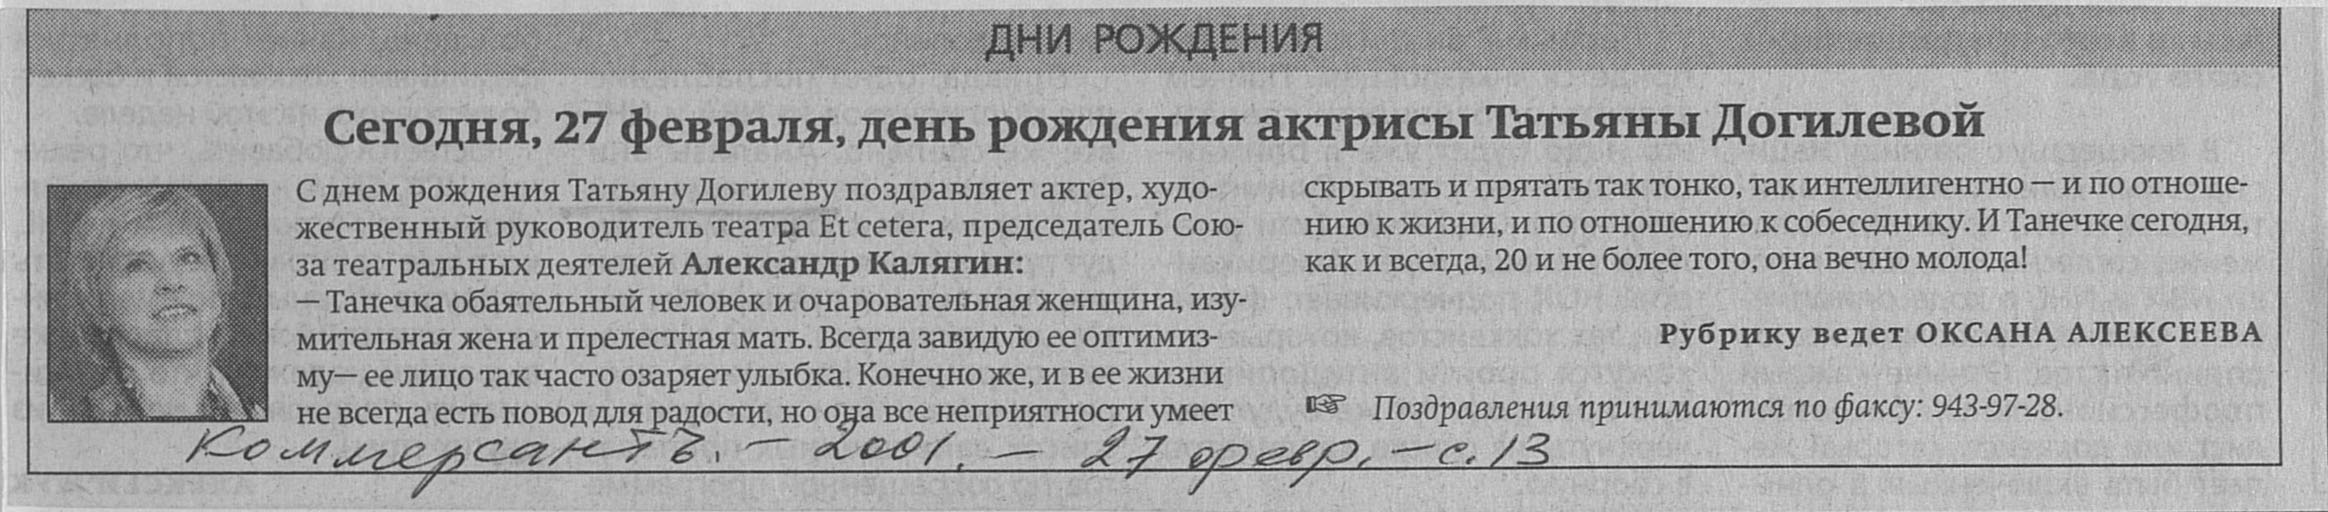 ДНИ РОЖДЕНИЯ
Сегодня, 27 февраля, день рождения актрисы Татьяны Догилевой
С днем рождения Татьяну Догилеву поздравляет актер, худо-
жественный руководитель театра Et cetera, председатель Сою-
за театральных деятелей Александр Калягин:
— Танечка обаятельный человек и очаровательная женщина, изу-
мительная жена и прелестная мать. Всегда завидую ее оптимиз-
му— ее лицо так часто озаряет улыбка. Конечно же, и в ее жизни
не всегда есть повод для радости, но она все неприятности умеет
скрывать и прятать так тонко, так интеллигентно — и по отноше-
нию к жизни, и по отношению к собеседнику. И Танечке сегодня,
как и всегда, 20 и не более того, она вечно молода!
Рубрику ведет ОКСАНА АЛЕКСЕЕВА
☞ Поздравления принимаются по факсу: 943-97-28.
Коммерсантъ. – 2001. – 27 февр. – с. 13